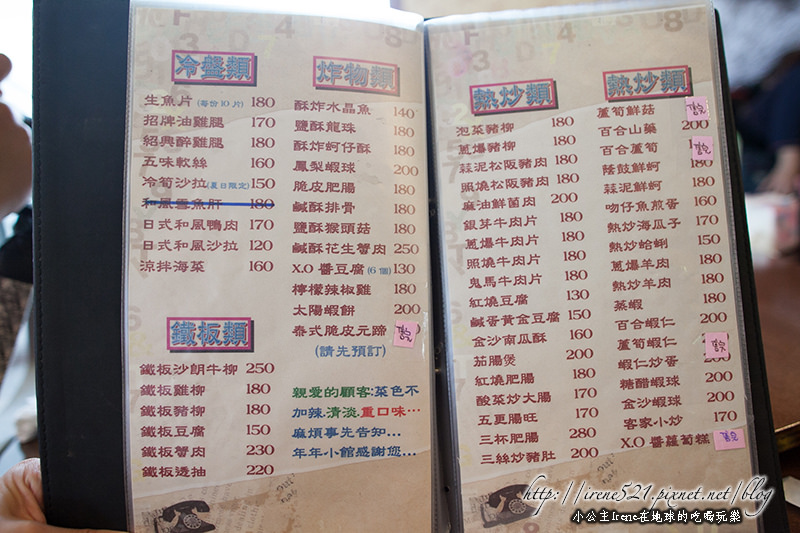 冷盤類
生魚片 (每份10片) 180
招牌油雞腿 170
紹興醉雞腿 180
五味軟絲 160
冷筍沙拉 (夏日限定) 150
和風雪魚肝 180
日式和風鴨肉 170
日式和風沙拉 120
涼拌海菜 160
鐵板類
鐵板沙朗牛柳 250
鐵板雞柳 180
鐵板豬柳 180
鐵板豆腐 150
鐵板蟹肉 230
鐵板透抽 220
炸物類
酥炸水晶魚 140
鹽酥龍珠 180
酥炸蚵仔酥 180
鳳梨蝦球 200
脆皮肥腸 180
鹹酥排骨 180
鹽酥猴頭菇 180
鹹酥花生蟹肉 250
X.O 醬豆腐 (6個) 130
檸檬辣椒雞 180
太陽蝦餅 200
泰式脆皮元蹄
(請先預訂)
親愛的顧客:菜色不
加辣.清淡.重口味…
麻煩事先告知…
年年小館感謝您…
熱炒類
泡菜豬柳 180
蔥爆豬柳 180
蒜泥松阪豬肉 180
照燒松阪豬肉 180
麻油鮮菌肉 200
銀芽牛肉片 180
蔥爆牛肉片 180
照燒牛肉片 180
鬼馬牛肉片 180
紅燒豆腐 130
鹹蛋黃金豆腐 150
金沙南瓜酥 160
茄腸煲 200
紅燒肥腸 180
酸菜炒大腸 200
五更腸旺 170
三杯肥腸 280
三絲炒豬肚 200
熱炒類
蘆筍鮮菇
百合山藥 200
百合蘆筍
蔭鼓鮮蚵 180
蒜泥鮮蚵 180
吻仔魚煎蛋 160
熱炒海瓜子 170
熱炒蛤蜊 150
蔥爆羊肉 180
熱炒羊肉 180
蒸蝦 180
百合蝦仁 200
蘆筍蝦仁
蝦仁炒蛋 200
糖醋蝦球 200
金沙蝦球 200
客家小炒 170
X.O 醬蘿蔔糕
http://irene521.pixnet.net/blog
小公主Irene在地球的吃喝玩樂